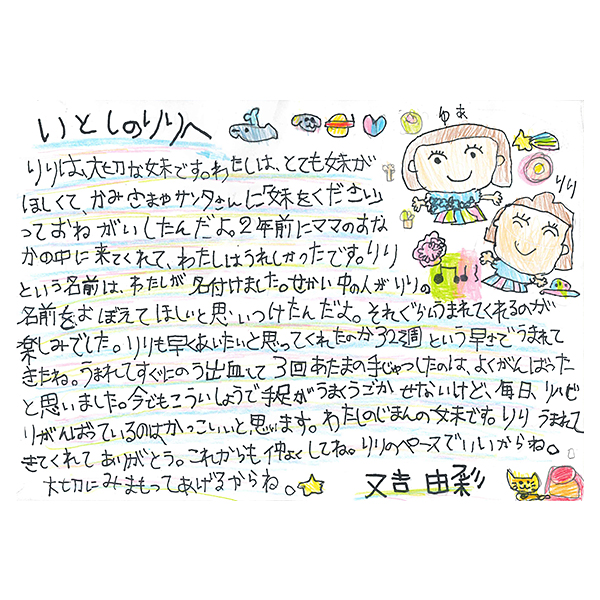 いとしのりりへ
ゆあ
りり
りりは、大切な妹です。わたしは、とても妹が
ほしくて、かみさまやサンタさんに「妹をください」
っておねがいしたんだよ。2年前にママのおな
かの中に来てくれて、わたしはうれしかったです。りり
という名前は、わたしが名付けました。せかい中の人がりりの
名前をおぼえてほしいと思いつけたんだよ。それぐらいうまれてくれるのが
楽しみでした。りりも早くあいたいと思ってくれたのか32週という早さでうまれて
きたね。うまれてすぐにのう出血して3回あたまの手じゅつしたのは、よくがんばった
と思いました。今でもこういしょうで手足がうまくうごかせないけど、毎日、リハビ
リがんばっているのは、かっこいいと思います。わたしのじまんの妹です。りりうまれて
きてくれてありがとう。これからも仲よくしてね。りりのペースでいいからね。
大切にみまもってあげるからね。
又吉由彩